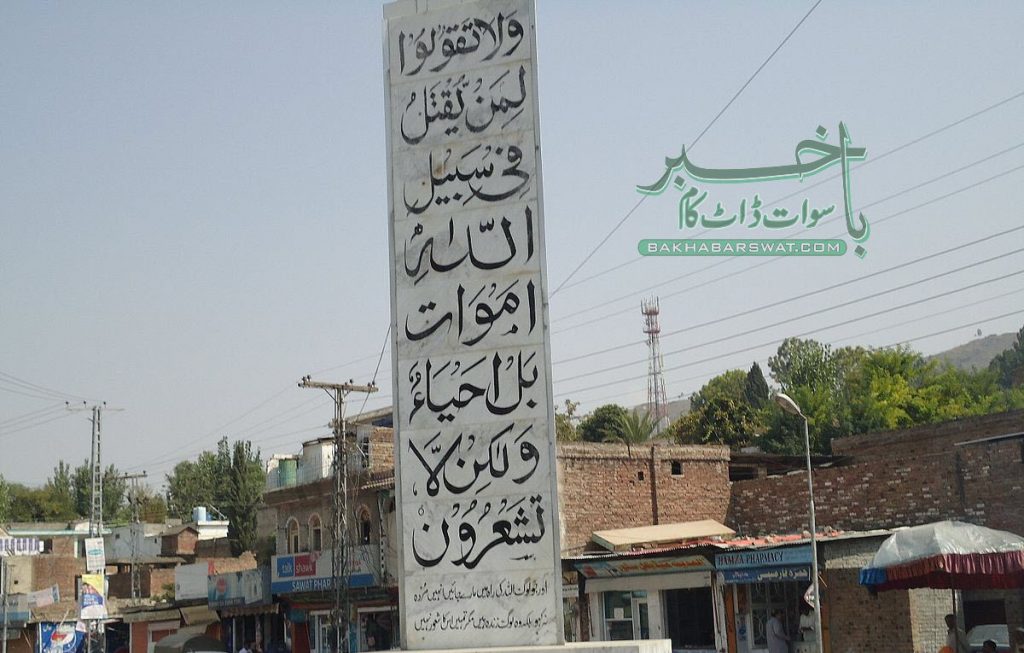 وَلَا تَقُوْلُوْا
لِمَنْ يُّقْتَلُ
فِیْ سَبِیْلِ
اللّٰہِ
اَمْوَات
بَلْ اَحْیَاءٌ
وَلٰکِنْ لَّا
تَشْعُرُوْن
اور جو لوگ اللہ کی راہ میں مارے جائیں انہیں مُردہ
نہ کہو بلکہ وہ لوگ زندہ ہیں مگر تمہیں اس کا شعور نہیں
باخبر
سوات ڈاٹ کام
BAKHABARSWAT.COM
talk
shawk
SAWAT PHARM
HAMZA PHARMACY
حمزہ فارمیسی